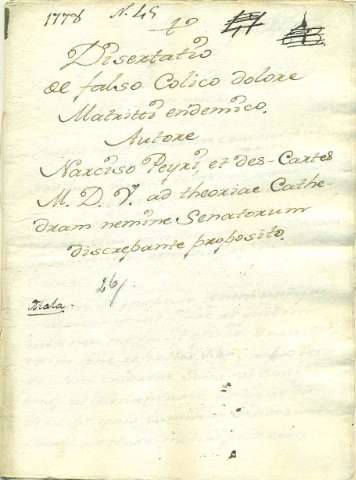 1778 N. 49
Disertatio
de falso Colico dolore
Matriti endemico.
Autore
Narciso Peyri, et des-Cartes
M. D. V. ad theoriae Cathe-
dram nemine Senatorum
discrepante proposito.
26/
Mala.